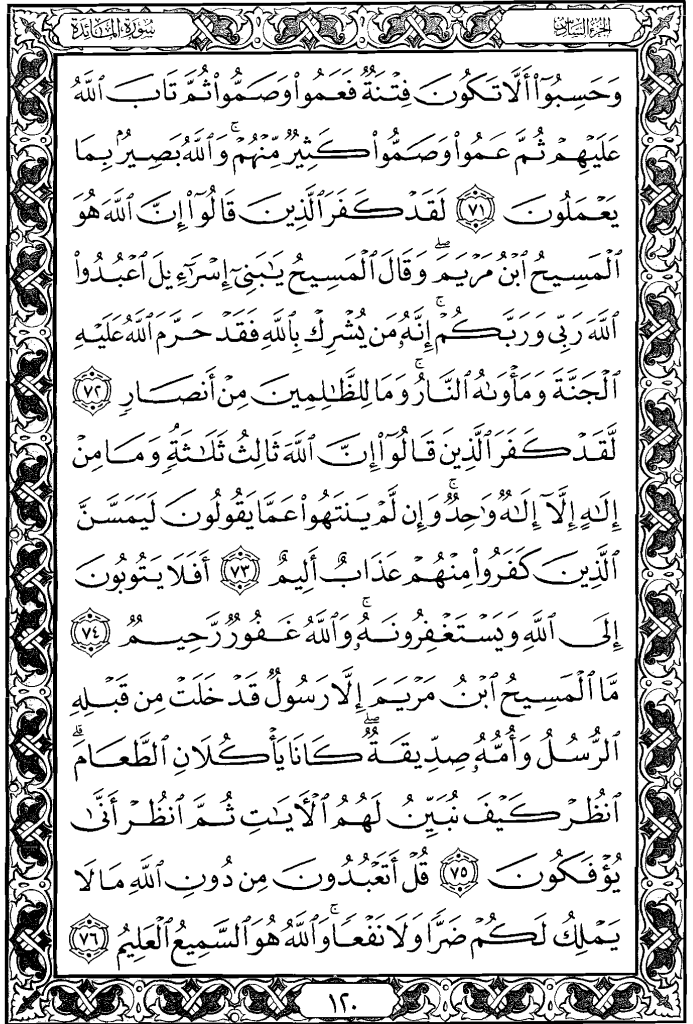 الجزء السادس
سورة المائدة
وَحَسِبُوٓا۟ أَلَّا تَكُونَ فِتْنَةٌ فَعَمُوا۟ وَصَمُّوا۟ ثُمَّ تَابَ ٱللَّهُ
عَلَيْهِمْ ثُمَّ عَمُوا۟ وَصَمُّوا۟ كَثِيرٌ مِّنْهُمْ ۚ وَٱللَّهُ بَصِيرٌۢ بِمَا
يَعْمَلُونَ ٧١ لَقَدْ كَفَرَ ٱلَّذِينَ قَالُوٓا۟ إِنَّ ٱللَّهَ هُوَ
ٱلْمَسِيحُ ٱبْنُ مَرْيَمَ ۖ وَقَالَ ٱلْمَسِيحُ يَٰبَنِىٓ إِسْرَٰٓءِيلَ ٱعْبُدُوا۟
ٱللَّهَ رَبِّى وَرَبَّكُمْ ۚ إِنَّهُۥ مَن يُشْرِكْ بِٱللَّهِ فَقَدْ حَرَّمَ ٱللَّهُ عَلَيْهِ
ٱلْجَنَّةَ وَمَأْوَىٰهُ ٱلنَّارُ ۖ وَمَا لِلظَّٰلِمِينَ مِنْ أَنصَارٍ ٧٢
لَّقَدْ كَفَرَ ٱلَّذِينَ قَالُوٓا۟ إِنَّ ٱللَّهَ ثَالِثُ ثَلَٰثَةٍ وَمَا مِنْ
إِلَٰهٍ إِلَّآ إِلَٰهٌ وَٰحِدٌ ۚ وَإِن لَّمْ يَنتَهُوا۟ عَمَّا يَقُولُونَ لَيَمَسَّنَّ
ٱلَّذِينَ كَفَرُوا۟ مِنْهُمْ عَذَابٌ أَلِيمٌ ٧٣ أَفَلَا يَتُوبُونَ
إِلَى ٱللَّهِ وَيَسْتَغْفِرُونَهُۥ ۚ وَٱللَّهُ غَفُورٌ رَّحِيمٌ ٧٤
مَّا ٱلْمَسِيحُ ٱبْنُ مَرْيَمَ إِلَّا رَسُولٌ قَدْ خَلَتْ مِن قَبْلِهِ
ٱلرُّسُلُ وَأُمُّهُۥ صِدِّيقَةٌ ۖ كَانَا يَأْكُلَانِ ٱلطَّعَامَ ۗ
ٱنظُرْ كَيْفَ نُبَيِّنُ لَهُمُ ٱلْءَايَٰتِ ثُمَّ ٱنظُرْ أَنَّىٰ
يُؤْفَكُونَ ٧٥ قُلْ أَتَعْبُدُونَ مِن دُونِ ٱللَّهِ مَا لَا
يَمْلِكُ لَكُمْ ضَرًّا وَلَا نَفْعًا ۚ وَٱللَّهُ هُوَ ٱلسَّمِيعُ ٱلْعَلِيمُ ٧٦
١٢٠